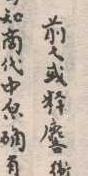 前人或释麐
知商代中原确有